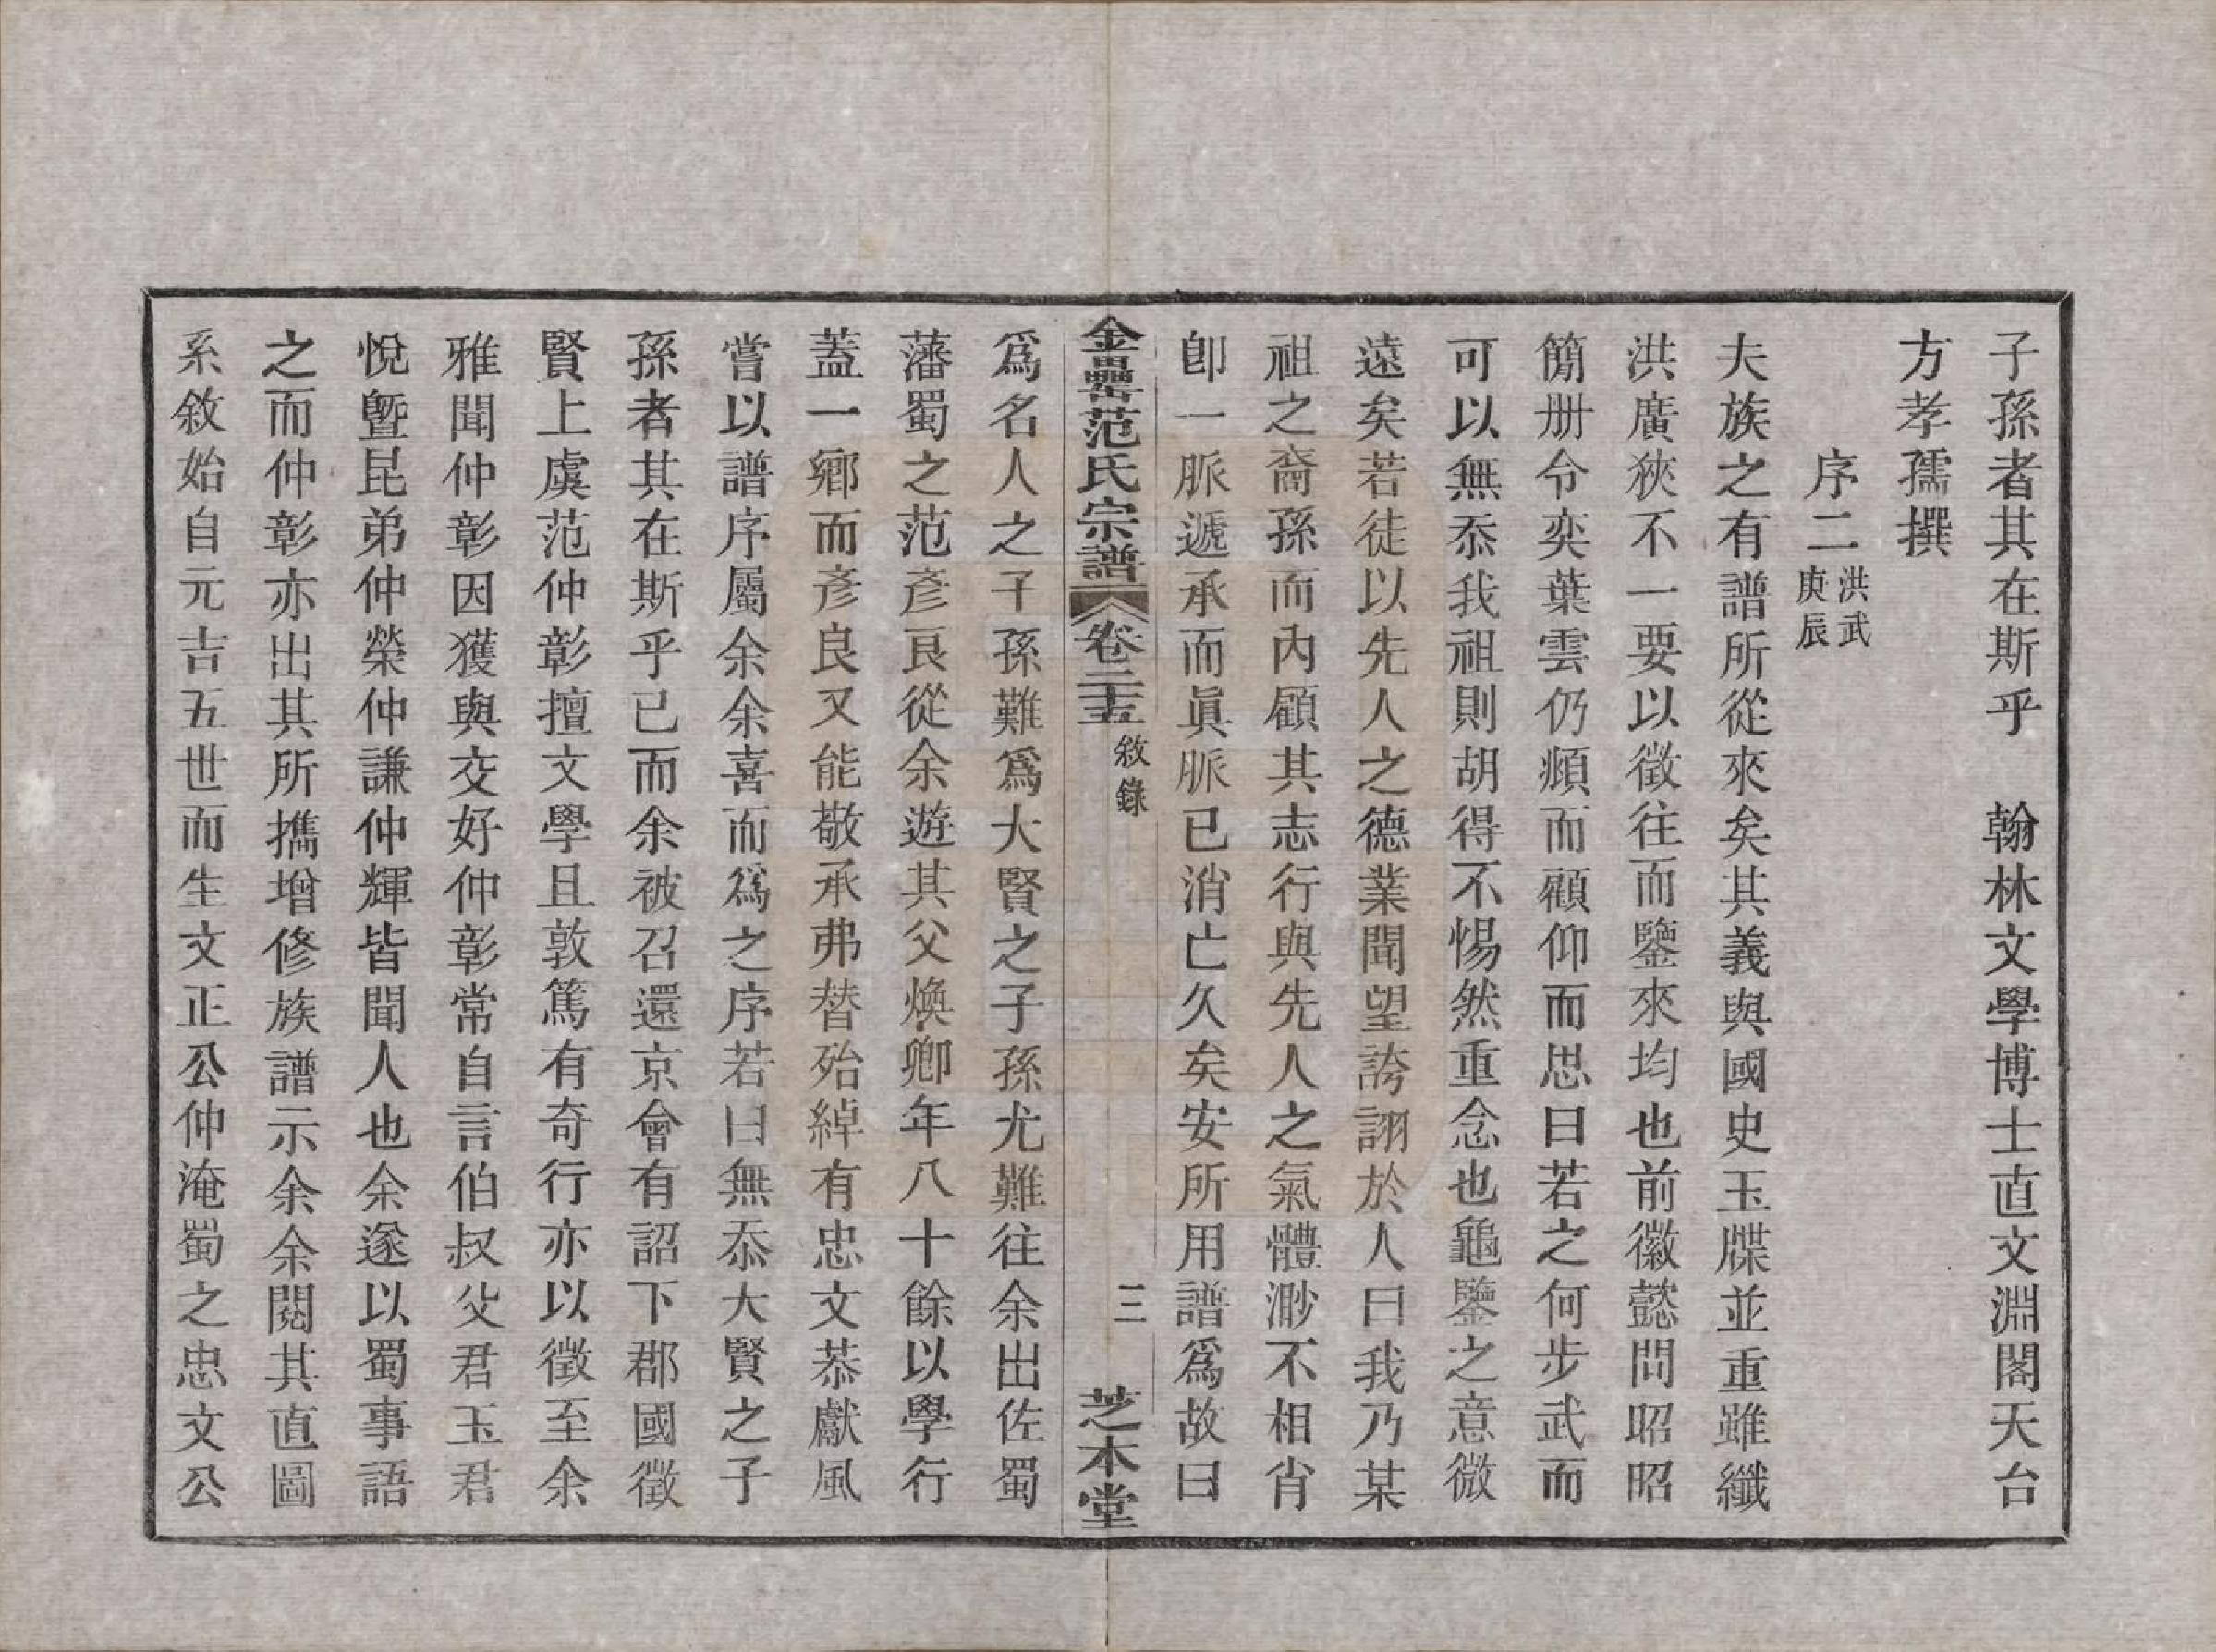 子孫者其在斯乎　翰林文學博士直文淵閣天台
方孝孺撰
序二洪武庚辰
夫族之有譜所從來矣其義與國史玉牒並重雖纖
洪廣狹不一要以徵往而鑒來均也前徽懿問昭昭
簡册令奕葉雲仍頫而顧仰而思曰若之何步武而
可以無忝我祖則胡得不惕然重念也龜鑒之意微
遠矣若徒以先人之德業聞望誇詡於人曰我乃某
祖之裔孫而內顧其志行與先人之氣體渺不相肖
卽一脈遞承而眞脈已消亡久矣安所用譜爲故曰
金罍范氏宗譜　卷二十五　敘錄　三　芝本堂
爲名人之子孫難爲大賢之子孫尤難往余出佐蜀
藩蜀之范彥良從余遊其父煥卿年八十餘以學行
蓋一鄉而彥良又能敬承弗替殆綽有忠文恭獻風
嘗以譜序屬余余喜而爲之序若曰無忝大賢之子
孫者其在斯乎已而余被召還京會有詔下郡國徵
賢上虞范仲彰擅文學且敦篤有奇行亦以徵至余
雅聞仲彰因獲與交好仲彰常自言伯叔父君玉君
悅曁昆弟仲榮仲謙仲輝皆聞人也余遂以蜀事語
之而仲彰亦出其所攜增修族譜示余余閱其直圖
系敘始自元吉五世而生文正公仲淹蜀之忠文公